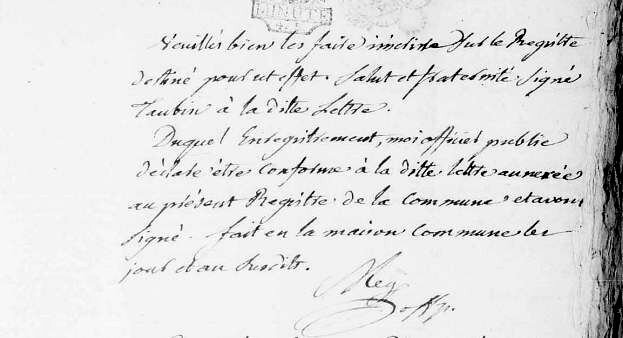 MINUTE
Veuillés bien les faire inscrire sur le Registre
destiné pour cet effet. Salut et fraternité. Signé
Taubin à la ditte Lettre.
Duquel Enregistrement, moi officier public
déclare être conforme à la ditte lettre annexée
au présent Registre de la Commune et avons
signé. fait en la maison Commune les
jour et an susdits.